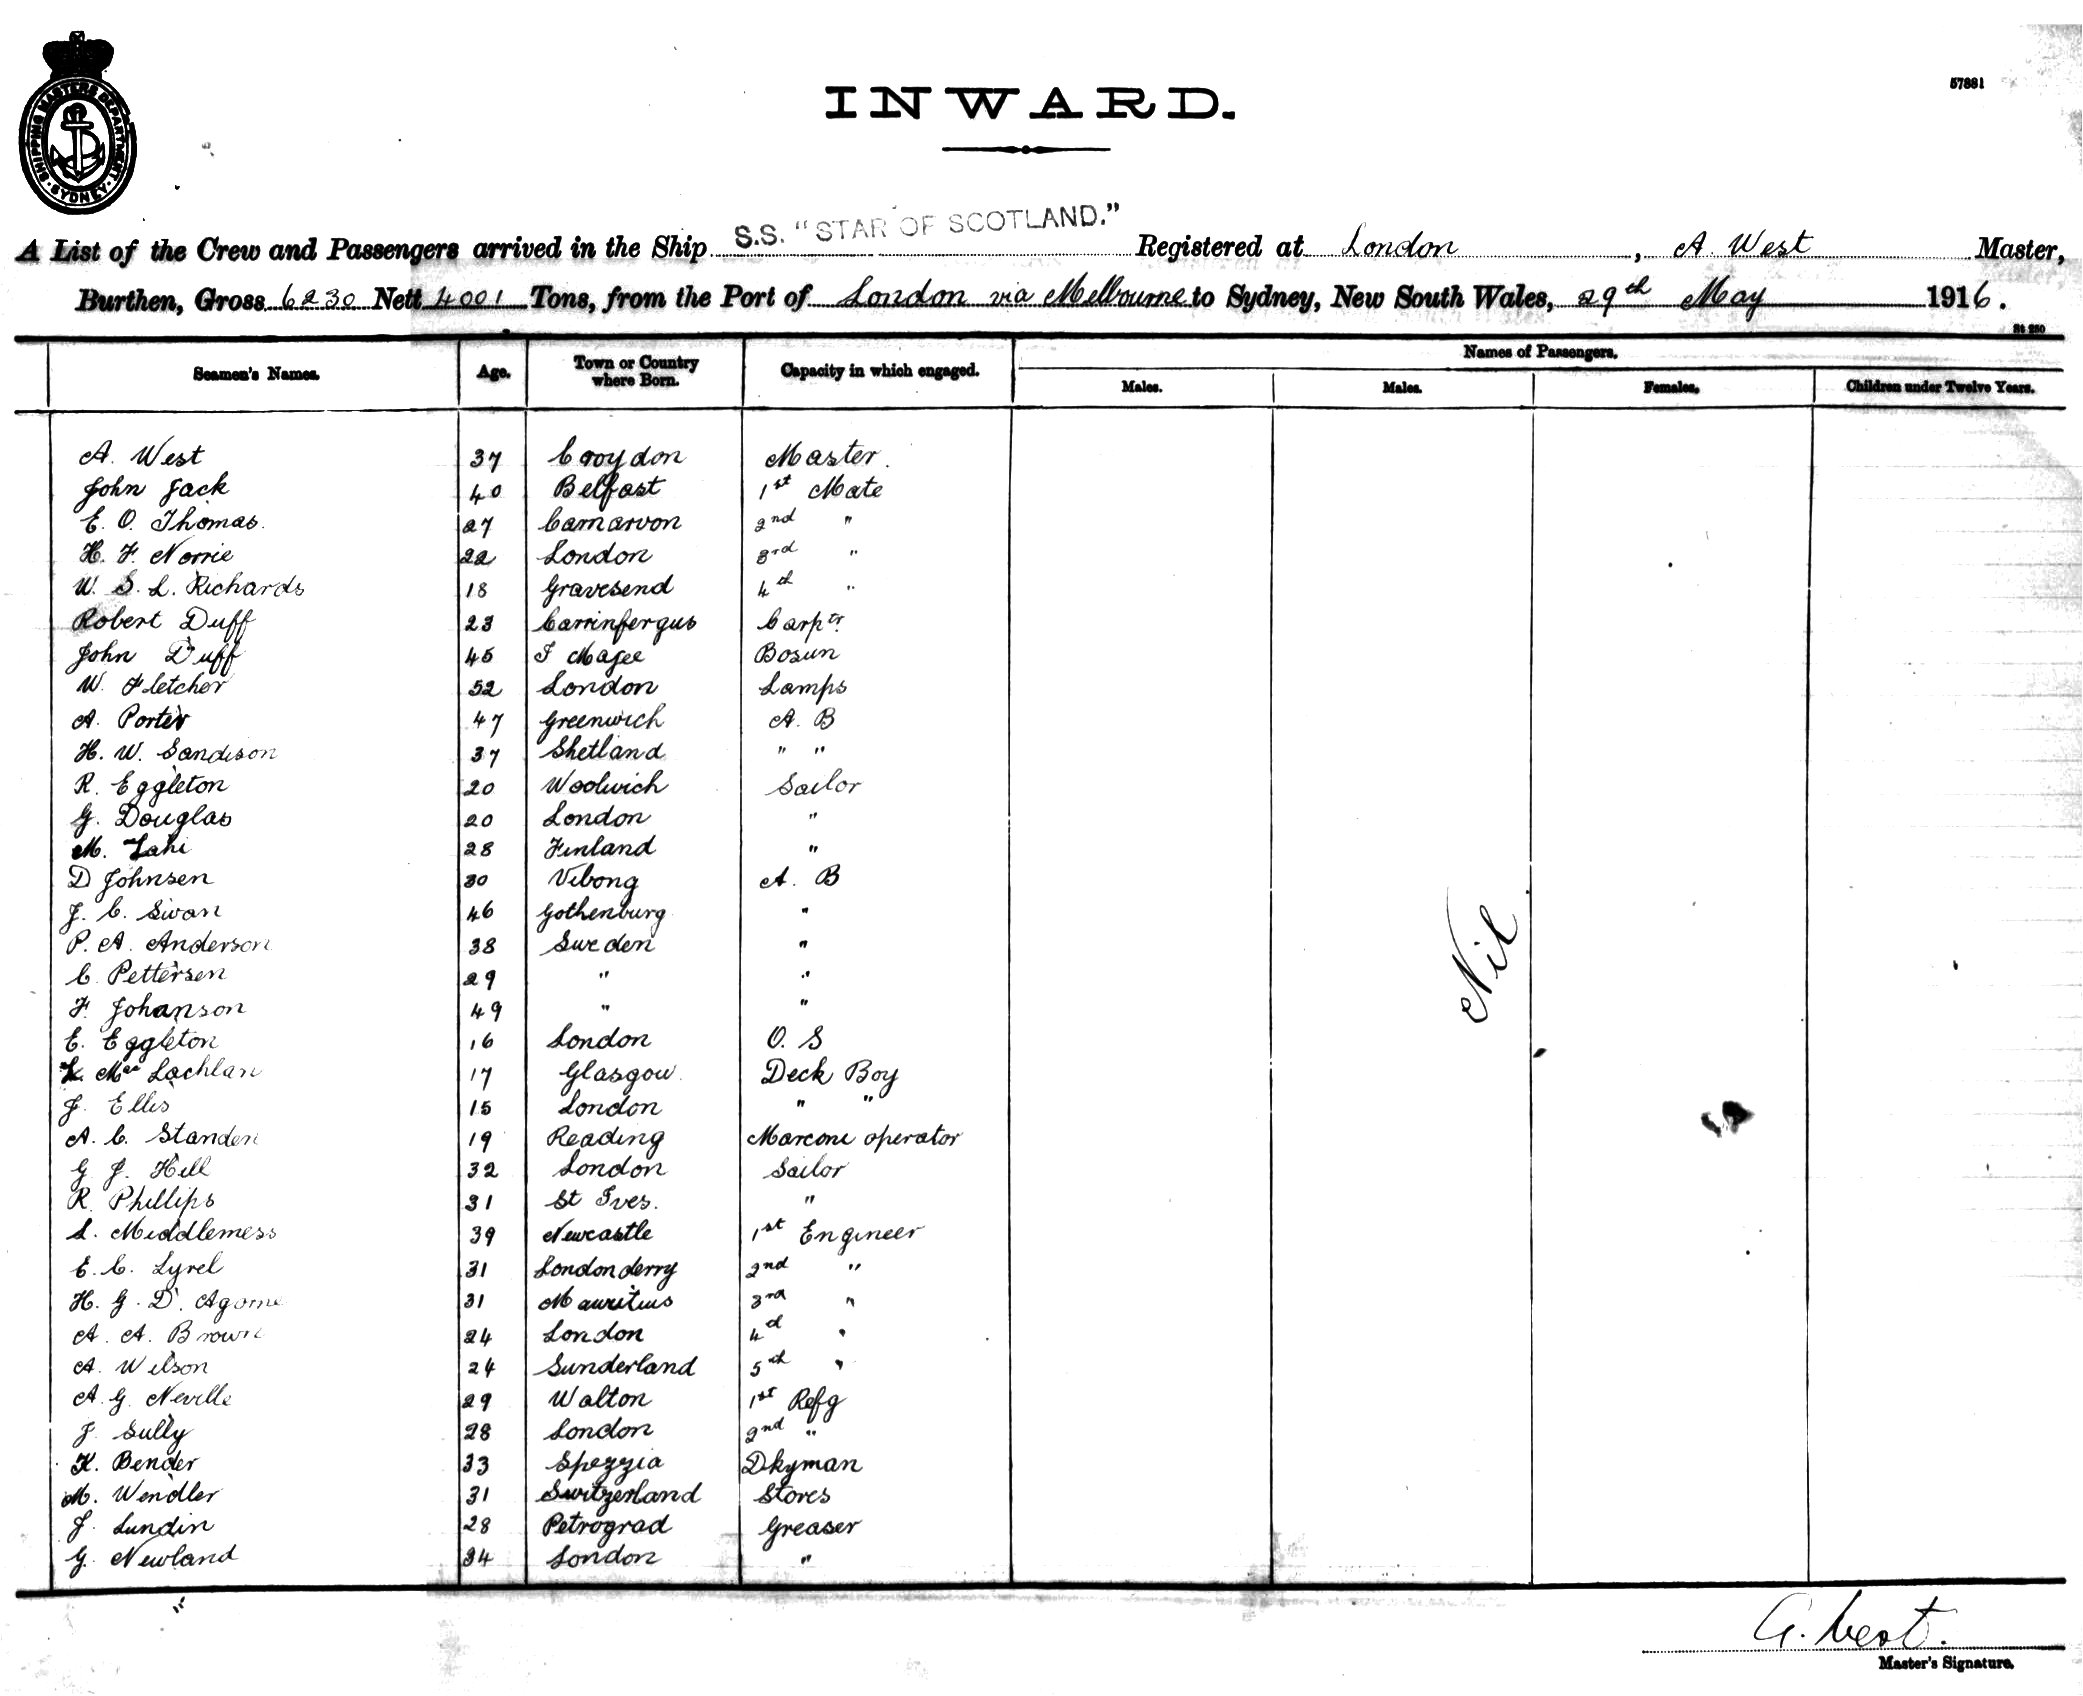 SHIPPING MASTERS DEPARTMENT · SYDNEY ·
57881
INWARD.
A List of the Crew and Passengers arrived in the Ship S.S. "STAR OF SCOTLAND." Registered at London, A. West Master,
Burthen, Gross 6230 Nett 4001 Tons, from the Port of London via Melbourne to Sydney, New South Wales, 29th May 1916.
St 250
Seamen's Names. Age. Town or Country where Born. Capacity in which engaged. Names of Passengers.
Males. Males. Females. Children under Twelve Years.
A. West 37 Croydon Master.
John Jack 40 Belfast 1st Mate
E. O. Thomas. 27 Carnarvon 2nd "
H. F. Norrie 22 London 3rd "
W. S. L. Richards 18 Gravesend 4th "
Robert Duff 23 Carrinfergus Carptr.
John Duff 45 I Magee Bosun
W. Fletcher 52 London Lamps
A. Porter 47 Greenwich A. B
H. W. Sandison 37 Shetland " "
R. Eggleton 20 Woolwich Sailor
G. Douglas 20 London "
M. Lahi 28 Finland "
D Johnsen 30 Vibong A. B
J. C. Swan 46 Gothenburg "
P. A. Anderson 38 Sweden "
C Pettersen 29 " "
F. Johanson 49 " "
E. Eggleton 16 London O. S
Mac Lachlan 17 Glasgow Deck Boy
J. Ellis 15 London " "
A. C. Standen 19 Reading Marconi operator
G J. Hill 32 London Sailor
R. Phillips 31 St Ives. "
L. Middlemess 39 Newcastle 1st Engineer
E. C. Lyrel 31 Londonderry 2nd "
H. G. D. Agome 31 Mauritius 3rd "
A. A. Brown 24 London 4th "
A. Wilson 24 Sunderland 5th "
A. G. Neville 29 Walton 1st Refg
J. Sully 28 London 2nd "
K. Bender 33 Spezzia Dkyman
M. Wendler 31 Switzerland Stores
J. Lundin 28 Petrograd Greaser
G. Newland 34 London "
Nil
A. West.
Master's Signature.